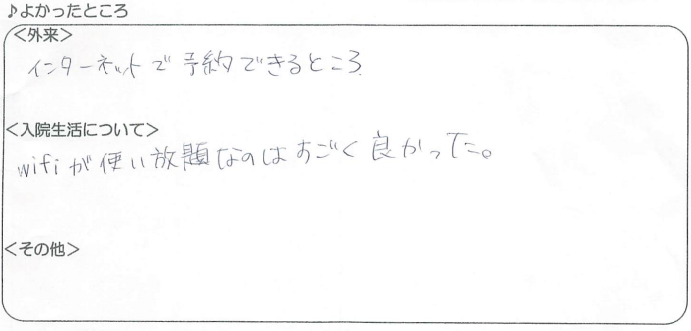 ♪よかったところ
<外来>
インターネットで予約できるところ
<入院生活について>
wifiが使い放題なのはすごく良かったです。
<その他>